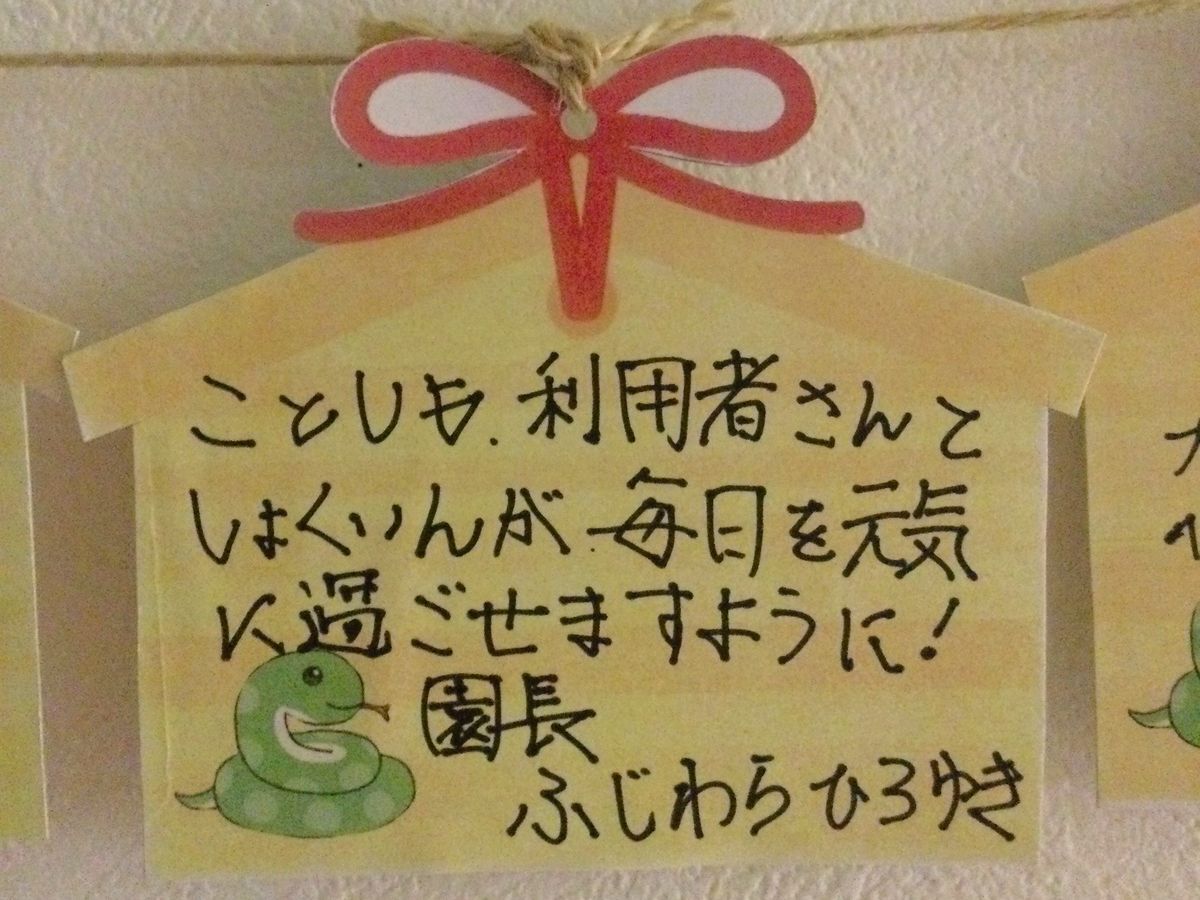 ことしも、利用者さんと
しょくいんが、毎日を元気
に過ごせますように!
園長
ふじわらひろゆき